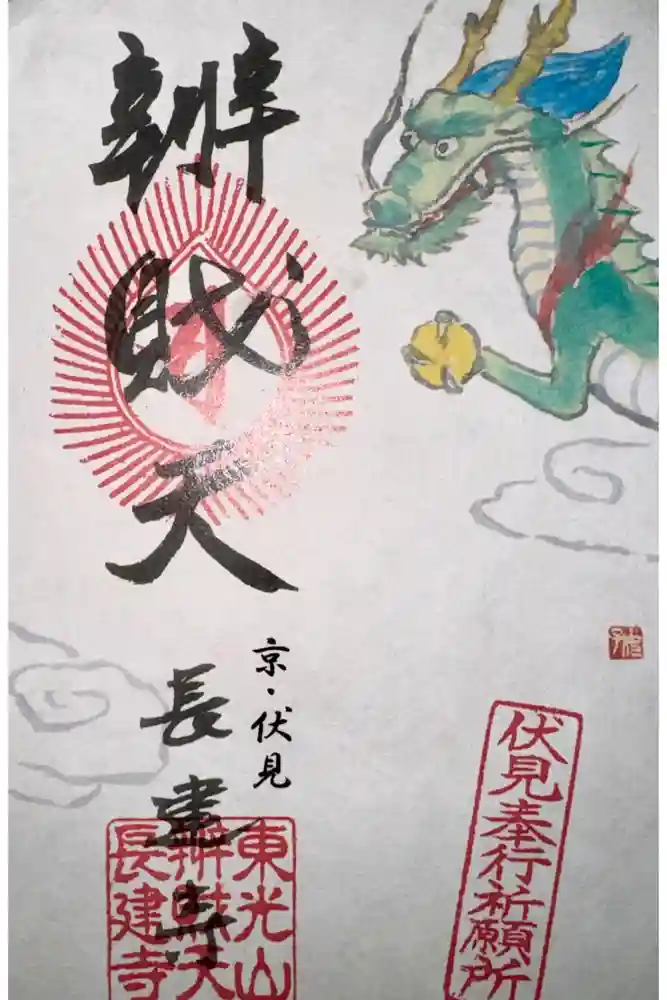 辨財天
京・伏見
長建寺
伏見奉行祈願所
東光山
辨財天
長建寺